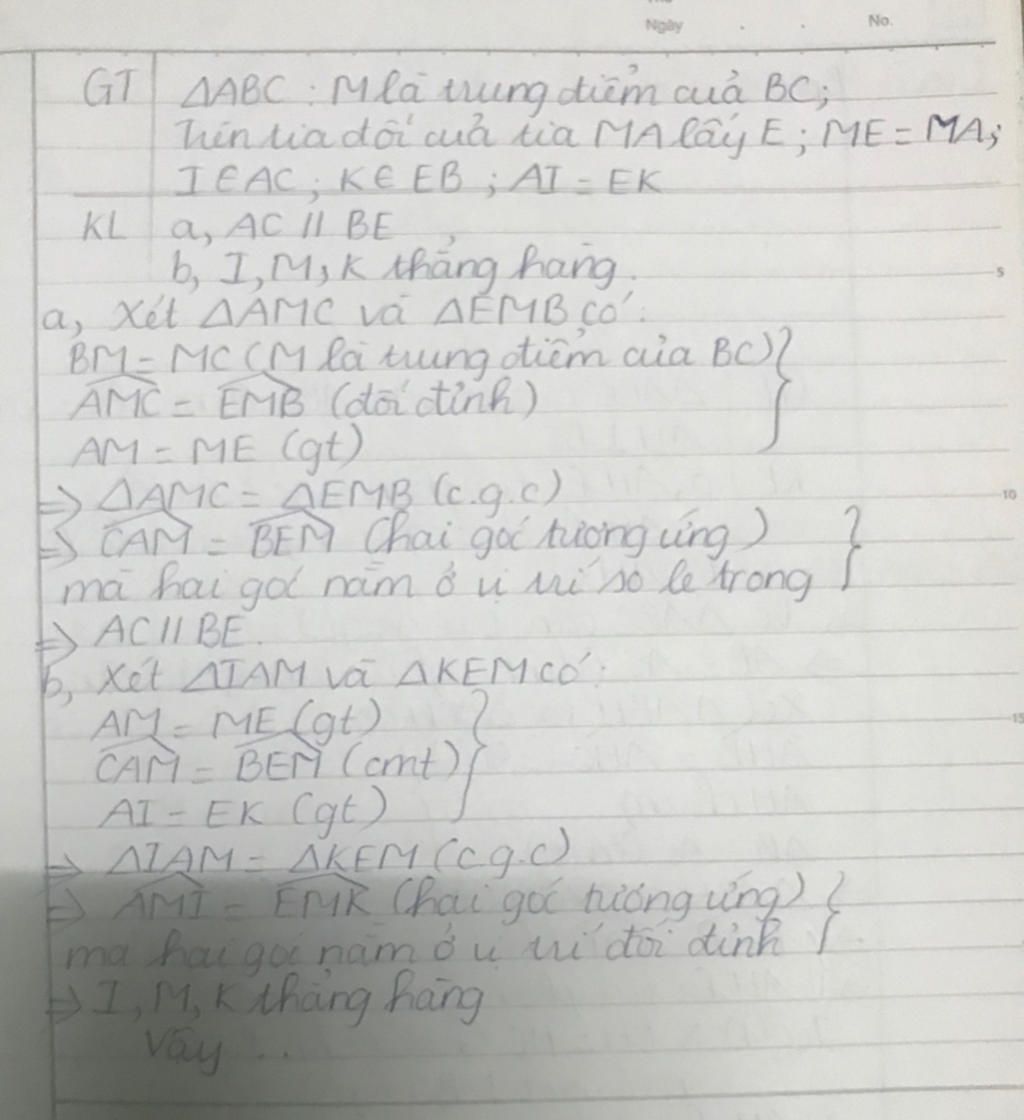 Ngày . . No.
GT ΔABC : M là trung điểm cuả BC;
Trên tia đối cuả tia MA lấy E ; ME = MA;
I ∈ AC ; K ∈ EB ; AI = EK
KL a, AC // BE
b, I, M, K thẳng hàng.
5
a, Xét ΔAMC và ΔEMB có:
BM = MC (M là trung điểm của BC) }
\widehat{AMC} = \widehat{EMB} (đối đỉnh)
AM = ME (gt)
=> ΔAMC = ΔEMB (c.g.c)
10
=> \widehat{CAM} = \widehat{BEM} (hai góc tương ứng) }
mà hai góc nằm ở vị trí so le trong
=> AC // BE.
b, Xét ΔIAM và ΔKEM có:
AM = ME (gt) }
15
\widehat{CAM} = \widehat{BEM} (cmt)
AI = EK (gt)
=> ΔIAM = ΔKEM (c.g.c)
=> \widehat{AMI} = \widehat{EMK} (hai góc tương ứng) }
mà hai góc nằm ở vị trí đối đỉnh
=> I, M, K thẳng hàng
Vậy ...